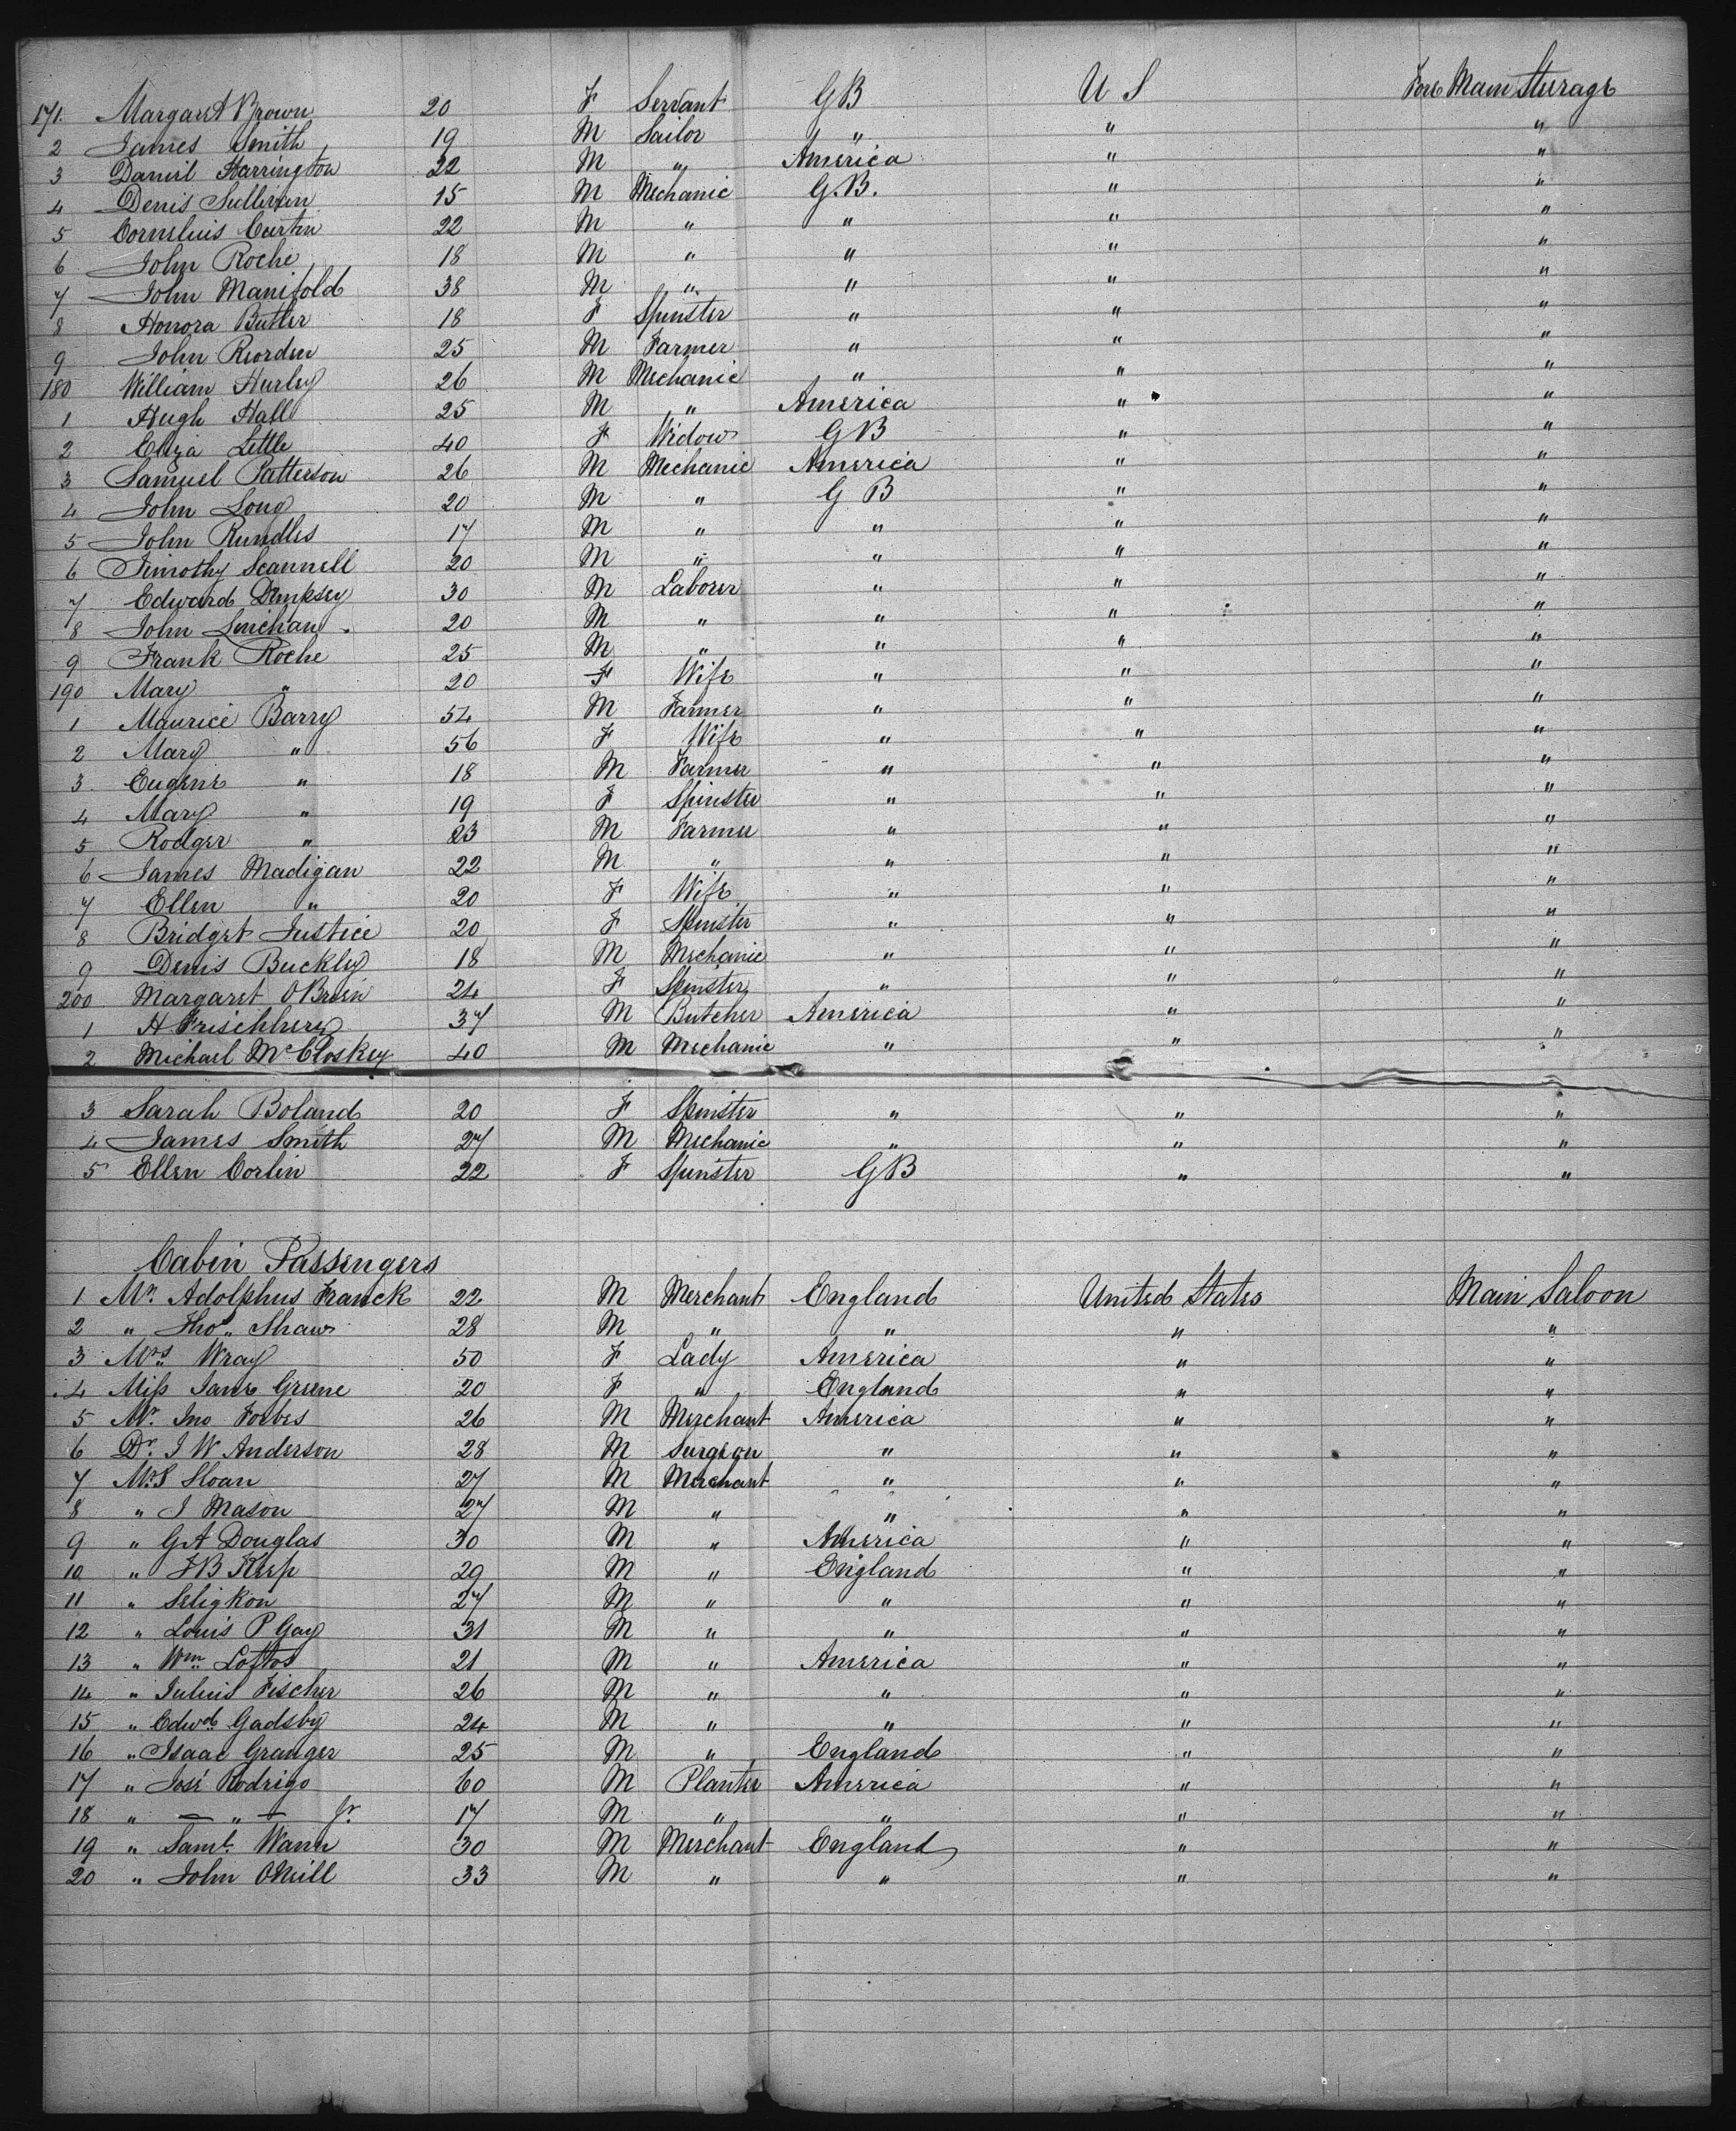 171. Margaret Brown 20 F Servant GB U S Fore Main Steerage
2 James Smith 19 M Sailor " " "
3 Daniel Harrington 22 M " America " "
4 Denis Sullivan 15 M Mechanic G.B. " "
5 Cornelius Curtin 22 M " " " "
6 John Roche 18 M " " " "
7 John Manifold 38 M " " " "
8 Honora Butler 18 F Spinster " " "
9 John Reorden 25 M Farmer " " "
180 William Hurley 26 M Mechanic " " "
1 Hugh Hall 25 M " America " "
2 Eliza Little 40 F Widow GB " "
3 Samuel Patterson 26 M Mechanic America " "
4 John Long 20 M " G B " "
5 John Rundles 17 M " " " "
6 Timothy Scannell 20 M " " " "
7 Edward Dempsey 30 M Laborer " " "
8 John Linehan 20 M " " " "
9 Frank Roche 25 M " " " "
190 Mary " 20 F Wife " " "
1 Maurice Barry 54 M Farmer " " "
2 Mary " 56 F Wife " " "
3. Eugene " 18 M Farmer " " "
4 Mary " 19 F Spinster " " "
5 Rodger " 23 M Farmer " " "
6 James Madigan 22 M " " " "
7 Ellen " 20 F Wife " " "
8 Bridget Justice 20 F Spinster " " "
9 Denis Buckley 18 M Mechanic " " "
200 Margaret OBrien 24 F Spinster " " "
1 H Frischberg 37 M Butcher America " "
2 Michael McCloskey 40 M Mechanic " " "
3 Sarah Boland 20 F Spinster " " "
4 James Smith 27 M Mechanic " " "
5 Ellen Corlin 22 F Spinster GB " "
Cabin Passengers
1 Mr. Adolphus Franck 22 M Merchant England United States Main Saloon
2 " Thos. Shaw 28 M " " " "
3 Mrs. Wray 50 F Lady America " "
4 Miss Jane Greene 20 F " England " "
5 Mr. Jno Forbes 26 M Merchant America " "
6 Dr. J W Anderson 28 M Surgeon " " "
7 Mr S Sloan 27 M Merchant " " "
8 " J Mason 27 M " " " "
9 " GA Douglas 30 M " America " "
10 " FB Keep 29 M " England " "
11 " Seligkon 27 M " " " "
12 " Louis P Gay 31 M " " " "
13 " Wm Loftos 21 M " America " "
14 " Julius Fischer 26 M " " " "
15 " Edwd. Gadsby 24 M " " " "
16 " Isaac Granger 25 M " England " "
17 " José Rodrigo 60 M Planter America " "
18 " — " — Jr. 17 M " " " "
19 " Saml. Wann 30 M Merchant England " "
20 " John ONeill 33 M " " " "